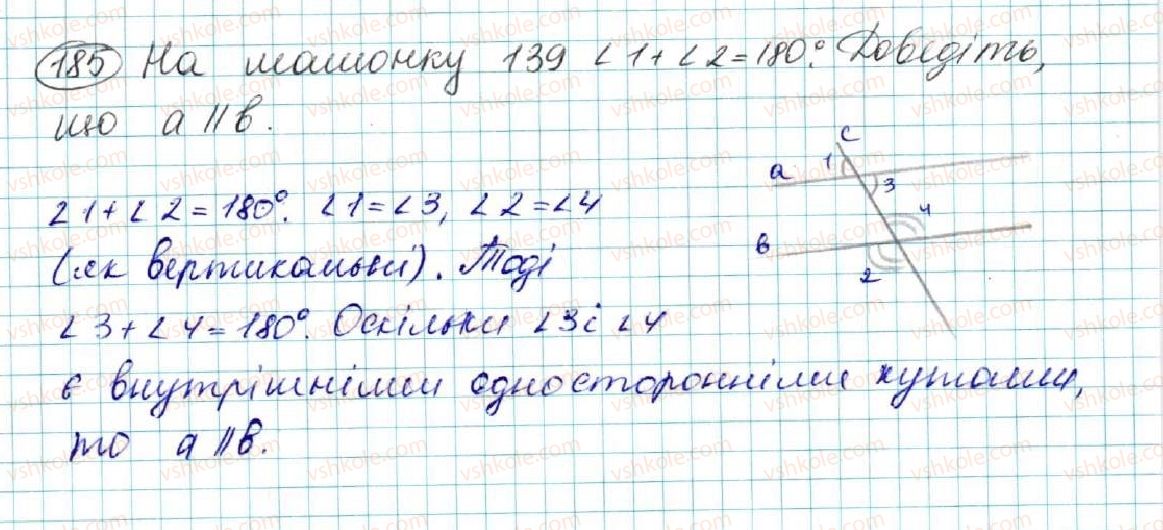 185 На малюнку 139 ∠1+∠2=180°. Доведіть,
що a || b.
c
a 1 3
4
b 2
∠1+∠2=180°. ∠1=∠3, ∠2=∠4
(як вертикальні). Тоді
∠3+∠4=180°. Оскільки ∠3 і ∠4
є внутрішніми односторонніми кутами,
то a || b.